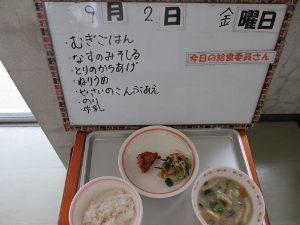 9月2日 金曜日
今日の給食委員さん
・むぎごはん
・なすのみそしる
・とりのからあげ
・ねりうめ
・やさいのこんぶあえ
・のり
・牛乳